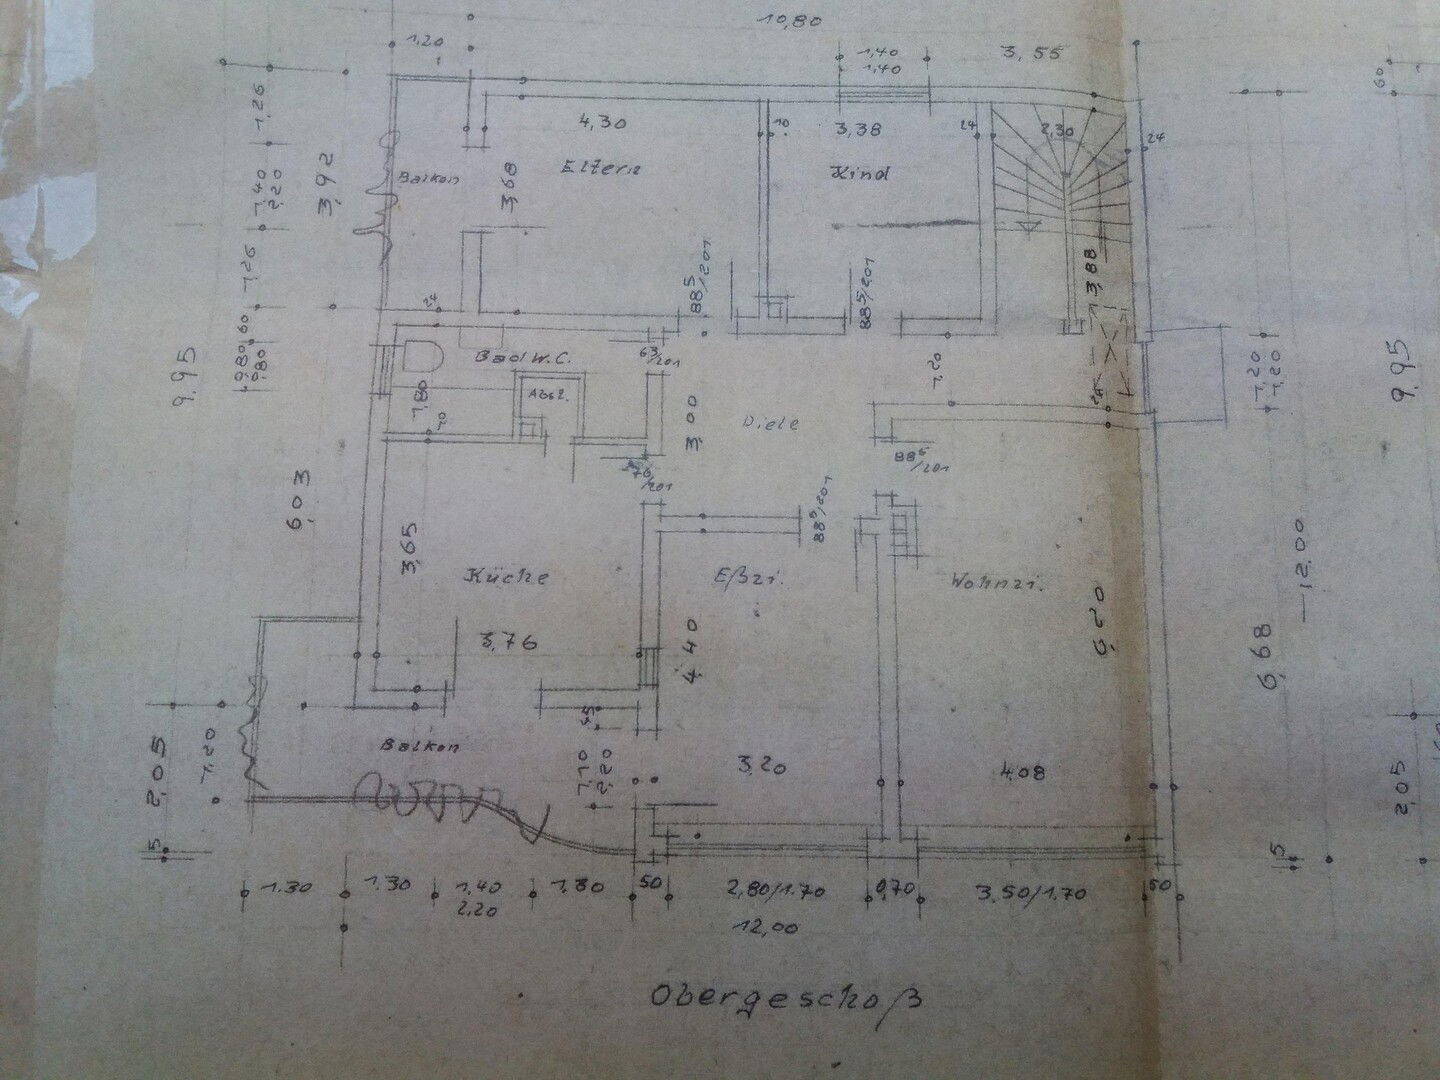 10,80
1,20
1,40
1,40
3,55
60
1,26
4,30
10
3,38
24
2,30
24
Eltern
Kind
Balkon
3,68
3,92
1,40
2,20
1,26
88⁵/201
88⁵/201
3,88
24
60
Bad W.C.
63/201
9,95
0,80
1,80
Abst.
10
3,00
Diele
1,20
24
1,20
1,20
9,95
76/201
88⁵/201
88⁵/201
6,03
3,65
Küche
Eßzi.
Wohnzi.
12.00
3,76
4,40
6,68
45
Balkon
1,20
2,05
1,10
2,20
3,20
4.08
2,05
5
5
1.30
1.30
1.40
2.20
1.80
50
2,80/1.70
0,70
3.50/1.70
50
12,00
Obergeschoß